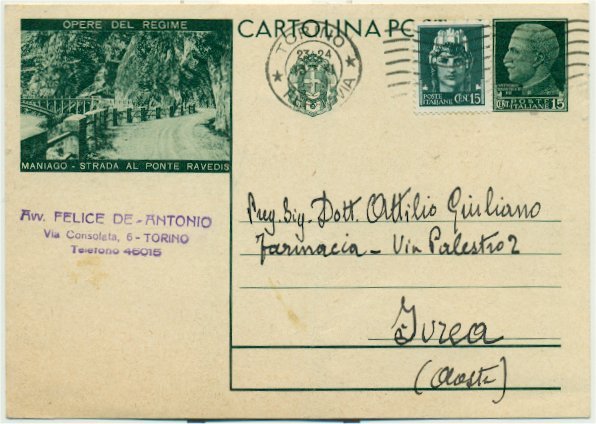 OPERE DEL REGIME
MANIAGO - STRADA AL PONTE RAVEDIS
CARTOLINA
TORINO
23-24
FERROVIA
POSTE
ITALIANE CEN. 15
15
Avv. FELICE DE-ANTONIO
Via Consolata, 6 - TORINO
Telefono 46015
Preg. Sig. Dott. Attilio Giuliano
Farmacia - Via Palestro 2
Ivrea
(Aosta)